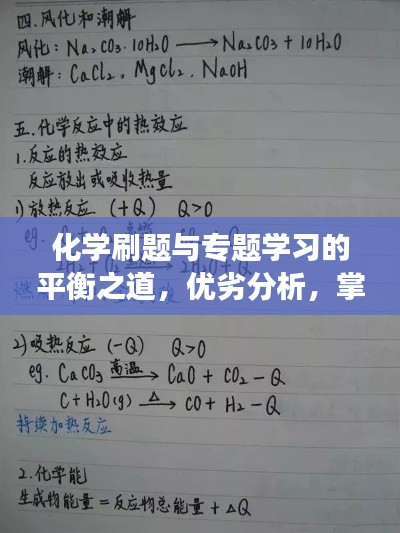 四.风化和潮解
风化：Na₂CO₃·10H₂O ⟶ Na₂CO₃ + 10H₂O
潮解：CaCl₂、MgCl₂、NaOH
五.化学反应中的热效应
1.反应的热效应
反应放出或吸收热量
1)放热反应 (+Q) Q>0
eg.
化学刷题与专题学习的
平衡之道，优劣分析，掌
2)吸热反应 (-Q) Q>0
eg. CaCO₃ 高温⟶ CaO + CO₂ - Q
C + H₂O(g) △⟶ CO + H₂ - Q
持续加热反应
2.化学能
生成物能量 = 反应物总能量 + △Q